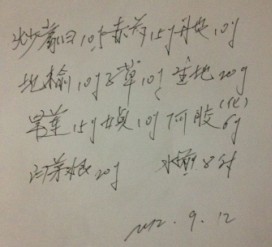 炒蒿白10g赤芍15g丹皮10g
地榆10g紫草10g生地20g
旱莲15g女贞10g阿胶(化)6g
白茅根20g 水煎8付
2012.9.12